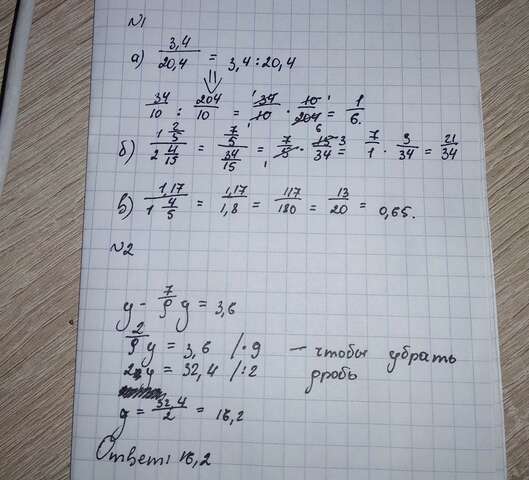 №1
а) 3,4/20,4 = 3,4 : 20,4
⇓
34/10 : 204/10 = 34/10 · 10/204 = 1/6.
б) 1 2/5 / 2 4/15 = 7/5 / 34/15 = 7/5 · 15/34 = 7/1 · 3/34 = 21/34
в) 1,17 / 1 4/5 = 1,17/1,8 = 117/180 = 13/20 = 0,65.
№2
y - 7/9 y = 3,6
2/9 y = 3,6 /·9 — чтобы убрать
2 y = 32,4 /:2 дробь
y = 32,4/2 = 16,2
Ответ: 16,2